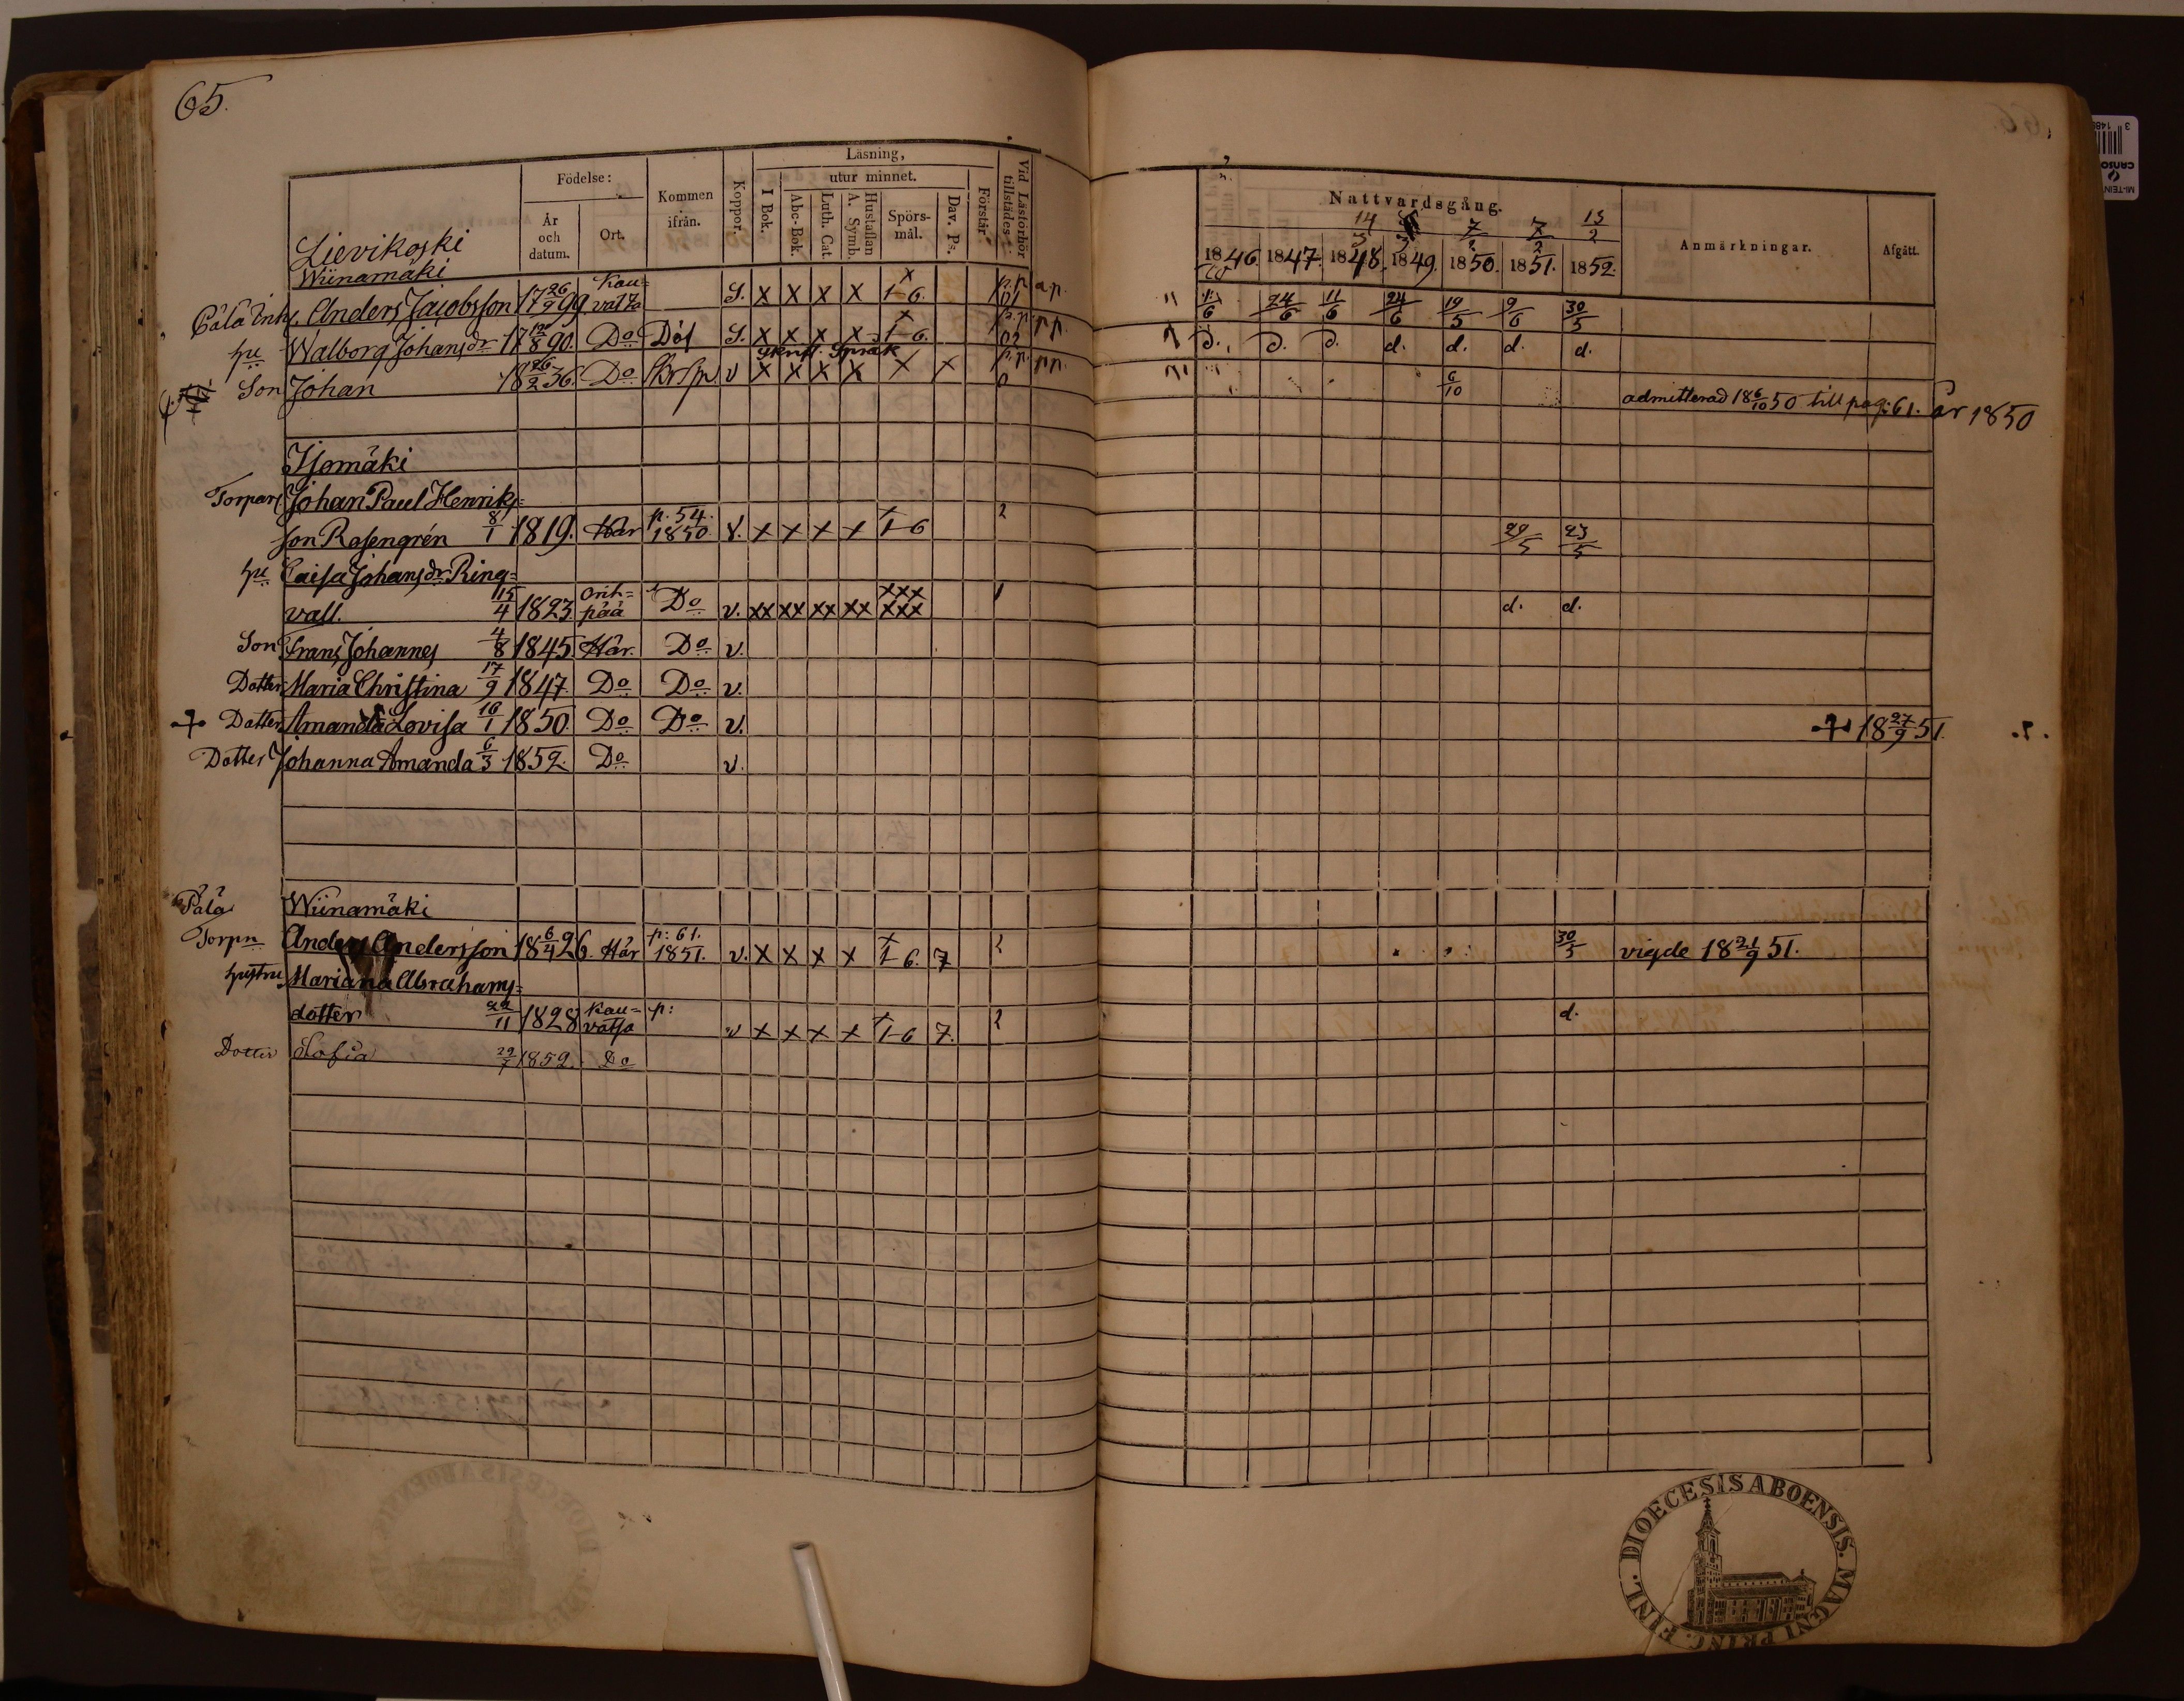 65.
Läsning,
Födelse:
Kommen ifrån.
Koppor.
utur minnet.
Vid Läsförhör tillstädes:
År och datum.
Ort.
I Bok.
Abc-Bok.
Luth. Cat.
Hustaflan A. Symb.
Spörs-mål.
Dav. Ps.
Förstår.
Nattvardsgång.
14/3 7/2 7/2 13/2
1846. 1847. 1848. 1849. 1850. 1851. 1852.
Anmärkningar.
Afgått.
Lievikoski
Wiinamäki
Påla Inh. Anders Jacobsson 17 26/9 99 Kau= vatza S. x x x x 1-6. p.p. a.p. 24/6 11/6 24/6 19/5 9/6 30/5
hu Walborg Johansdr 17 90. Do Döt S. x x x x 1-6. p.p. p.p. d. d. d. d. d. d. d.
Skrift. Språk
Son Johan 18 26/2 36. Do v x x x x x x p.p. p.p. 6/10 admitterad 18 6/10 50 till pag: 61. år 1850
Isomäki
Torpare Johan Paul Henriks=
son Rosengrén 8/1 1819. Här p. 54. 1850. v. x x x x 1-6 2 29/5 23/5
hu Caisa Johansdr Ring=
vall. 15/4 1823 Orih= pää Do v. xx xx xx xx xxx xxx 1 d. d.
Son Frans Johannes 4/8 1845 Här. Do v.
Dotter Maria Christina 17/9 1847. Do Do v.
+ Dotter Amanda Lovisa 10/1 1850. Do Do v. + 18 27/9 51.
Dotter Johanna Amanda 6/3 1852. Do v.
Påla Wiinamäki
Torpn Anders Andersson 18 6/4 26. Här p: 61. 1851. v. x x x x 1-6. 7 2 30/5 vigde 18 21/9 51.
hustru Mariana Abrahams=
dotter 22/11 1828 Kau= vatsa p: v x x x x 1-6 7. 2 d.
Dotter Sofia 29/7 1852. Do
DIOECESIS ABOENSIS. MAGNI PRINC. FINL.